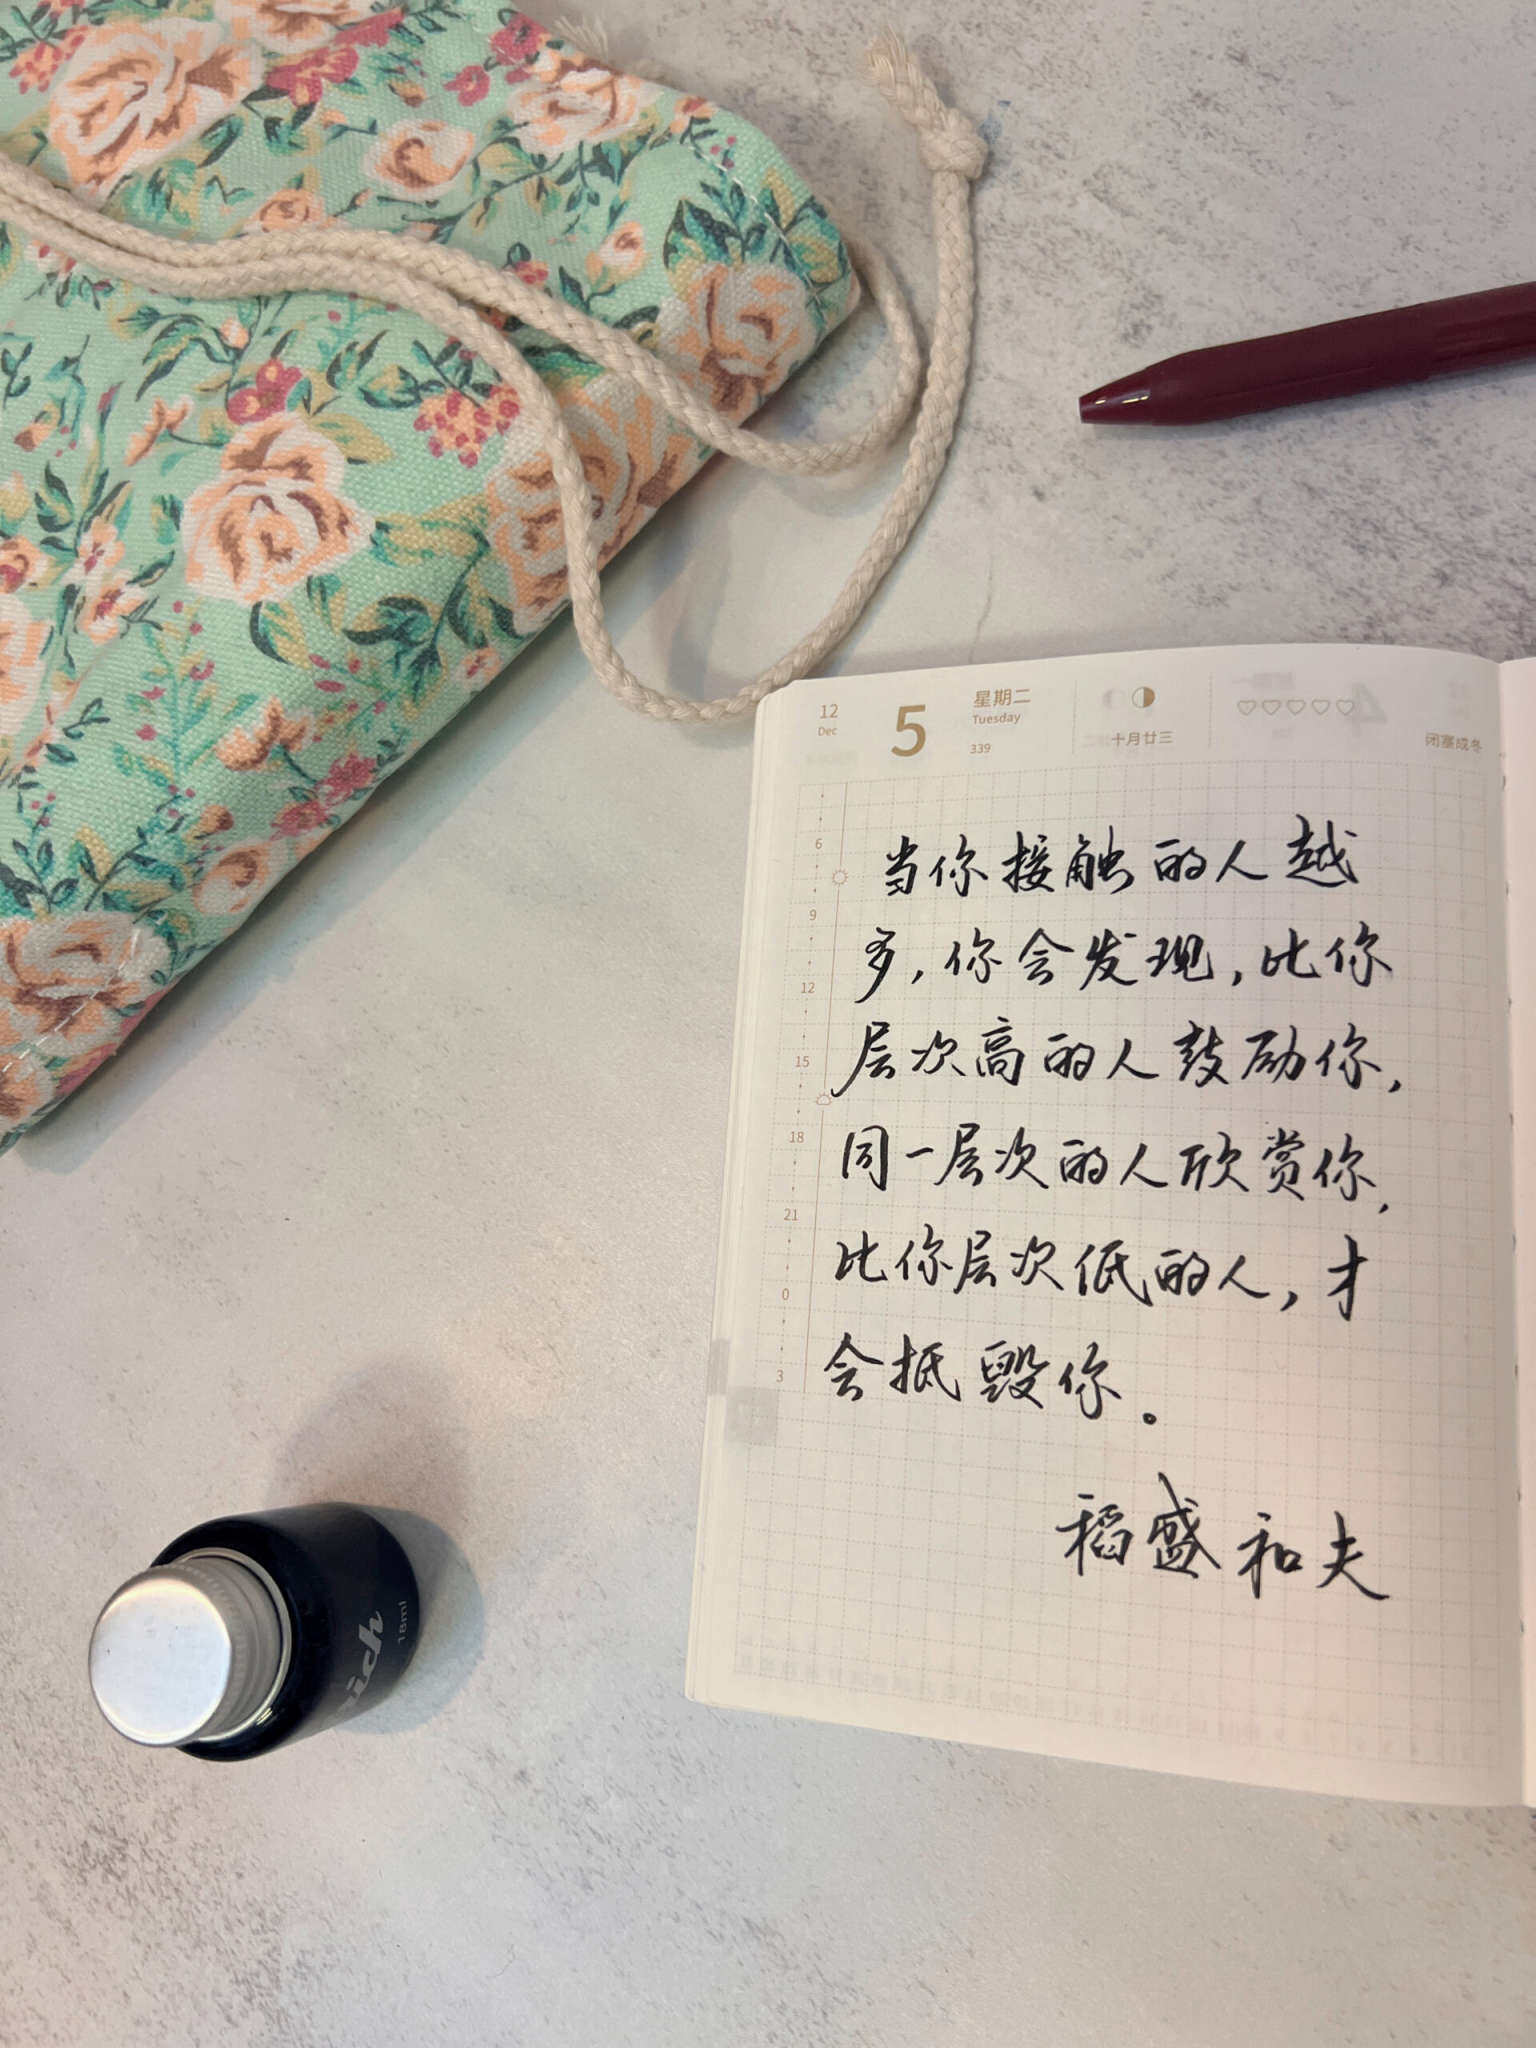 12
Dec
5
星期二
Tuesday
339
十月廿三
闭塞成冬
6
9
12
15
18
21
0
3
当你接触的人越
多,你会发现,比你
层次高的人鼓励你,
同一层次的人欣赏你,
比你层次低的人,才
会抵毁你。
稻盛和夫
18ml